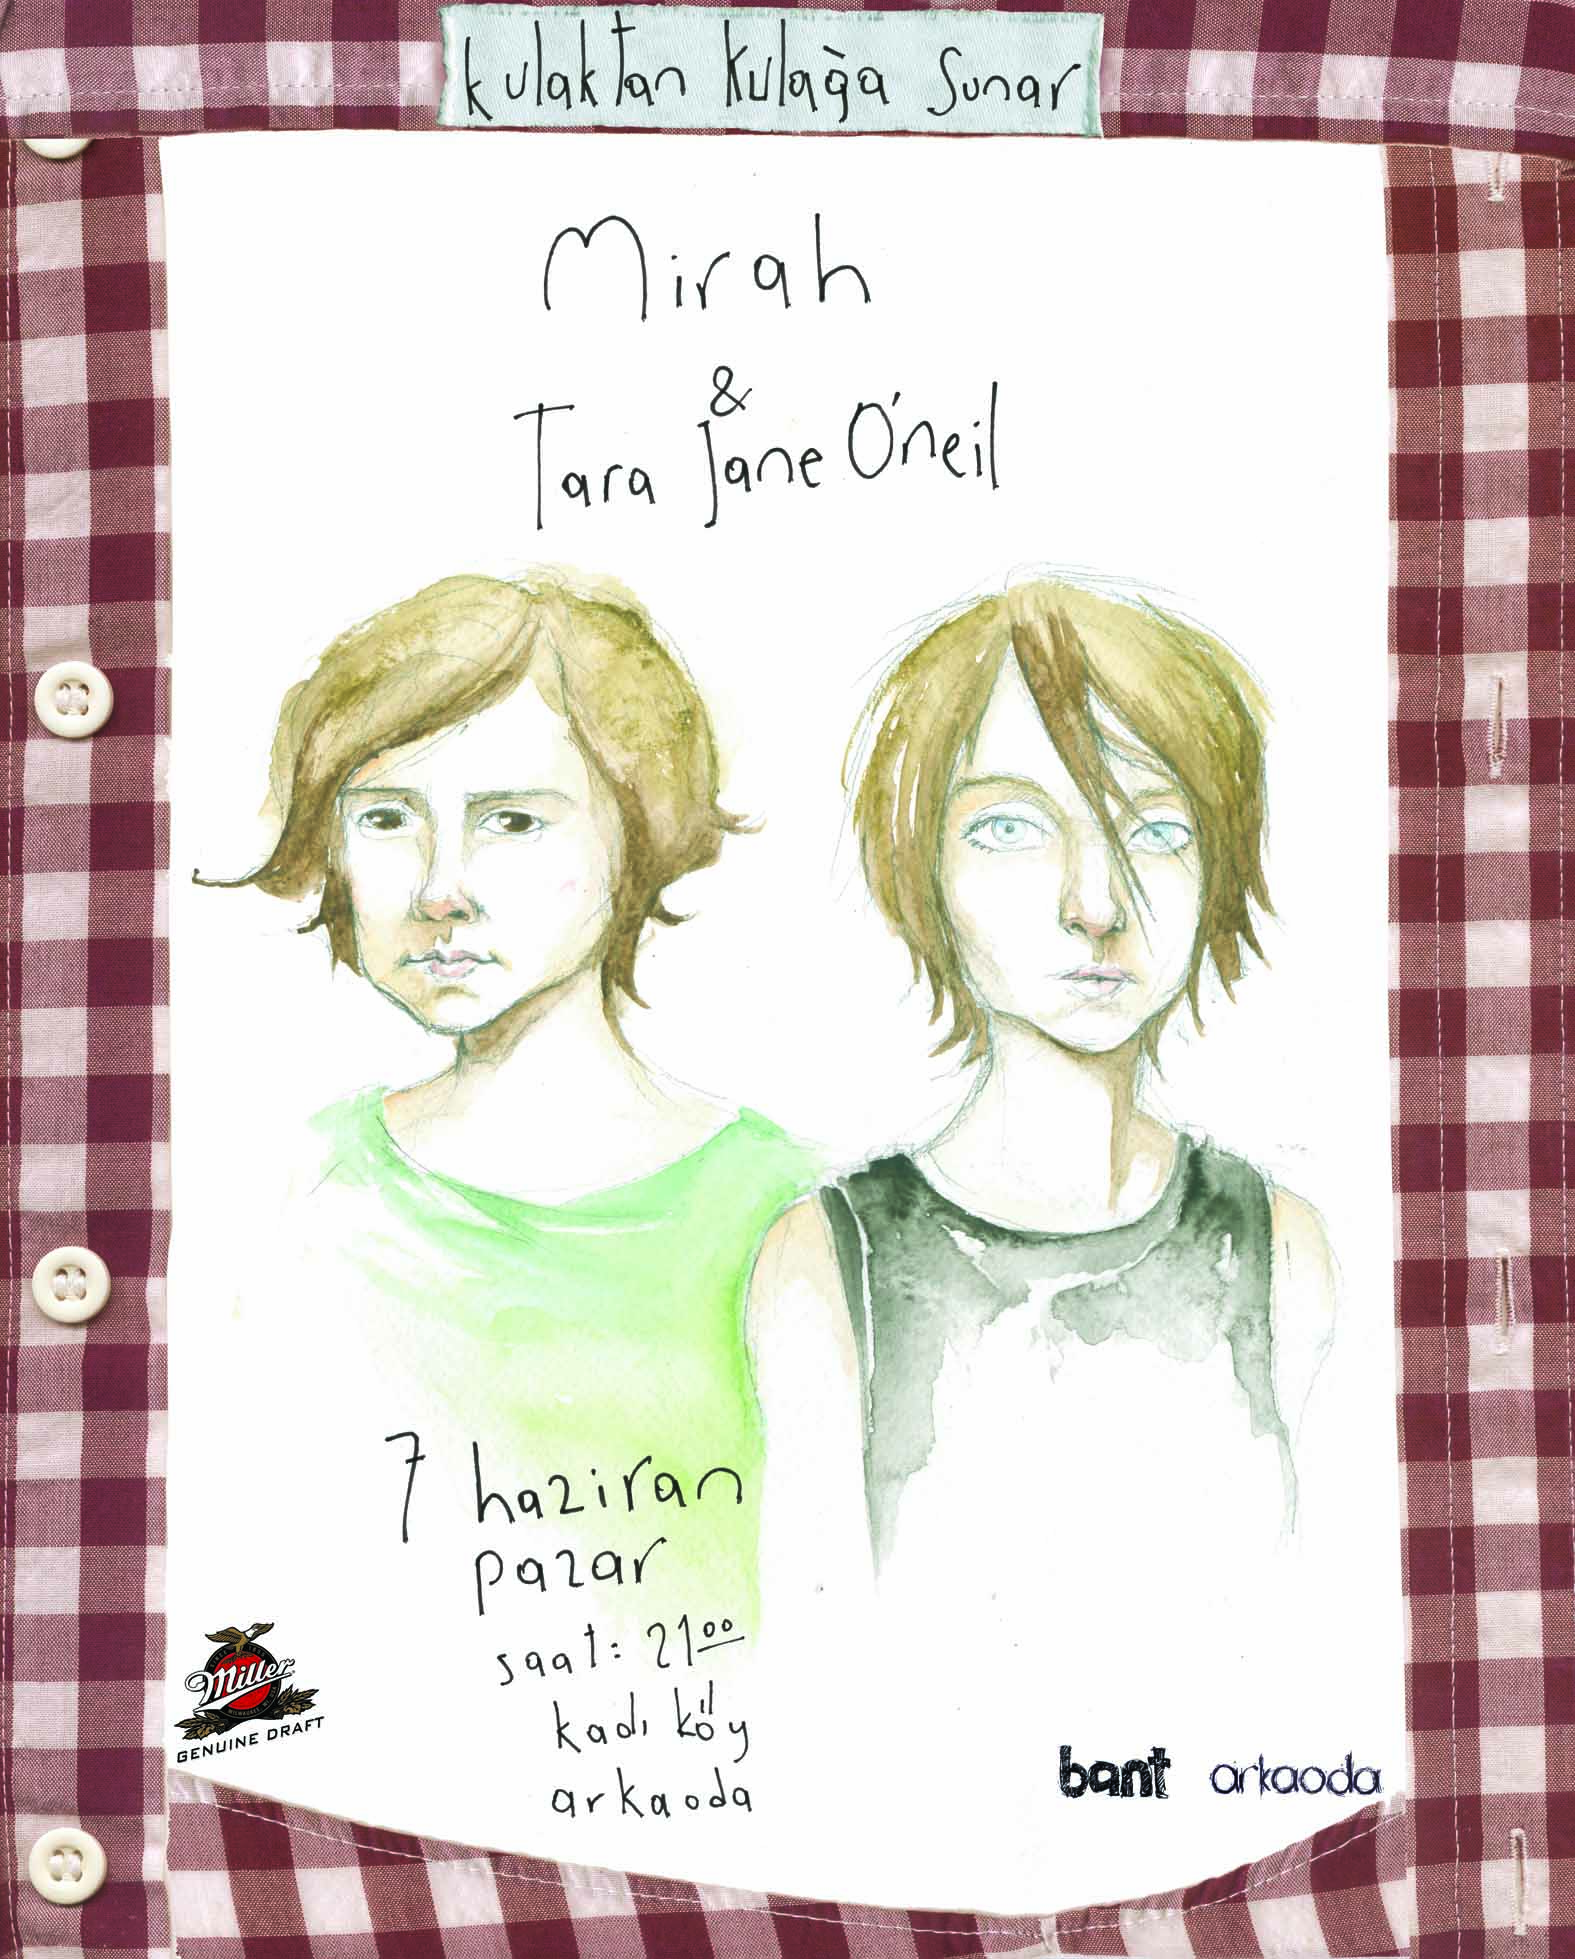 kulaktan kulağa sunar
Mirah
&
Tara Jane O'neil
7 haziran
pazar
saat: 21 00
kadı köy
arkaoda
Miller
GENUINE DRAFT
bant arkaoda